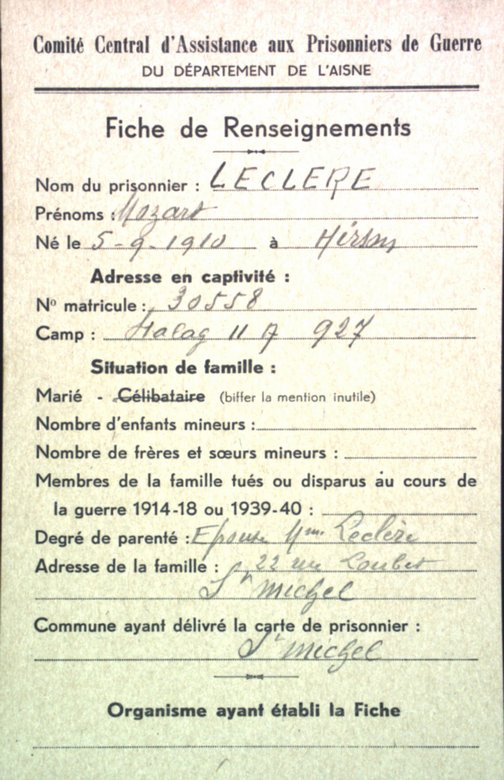 Comité Central d'Assistance aux Prisonniers de Guerre
DU DÉPARTEMENT DE L'AISNE
Fiche de Renseignements
Nom du prisonnier : LECLERE
Prénoms : Mozart
Né le 5-9-1910 à Hirson
Adresse en captivité :
Nº matricule : 30558
Camp : Stalag II A 927
Situation de famille :
Marié - Célibataire (biffer la mention inutile)
Nombre d'enfants mineurs :
Nombre de frères et sœurs mineurs :
Membres de la famille tués ou disparus au cours de
la guerre 1914-18 ou 1939-40 :
Degré de parenté : Epouse Mme Leclère
Adresse de la famille : 22 rue
St michel
Commune ayant délivré la carte de prisonnier :
St michel
Organisme ayant établi la Fiche